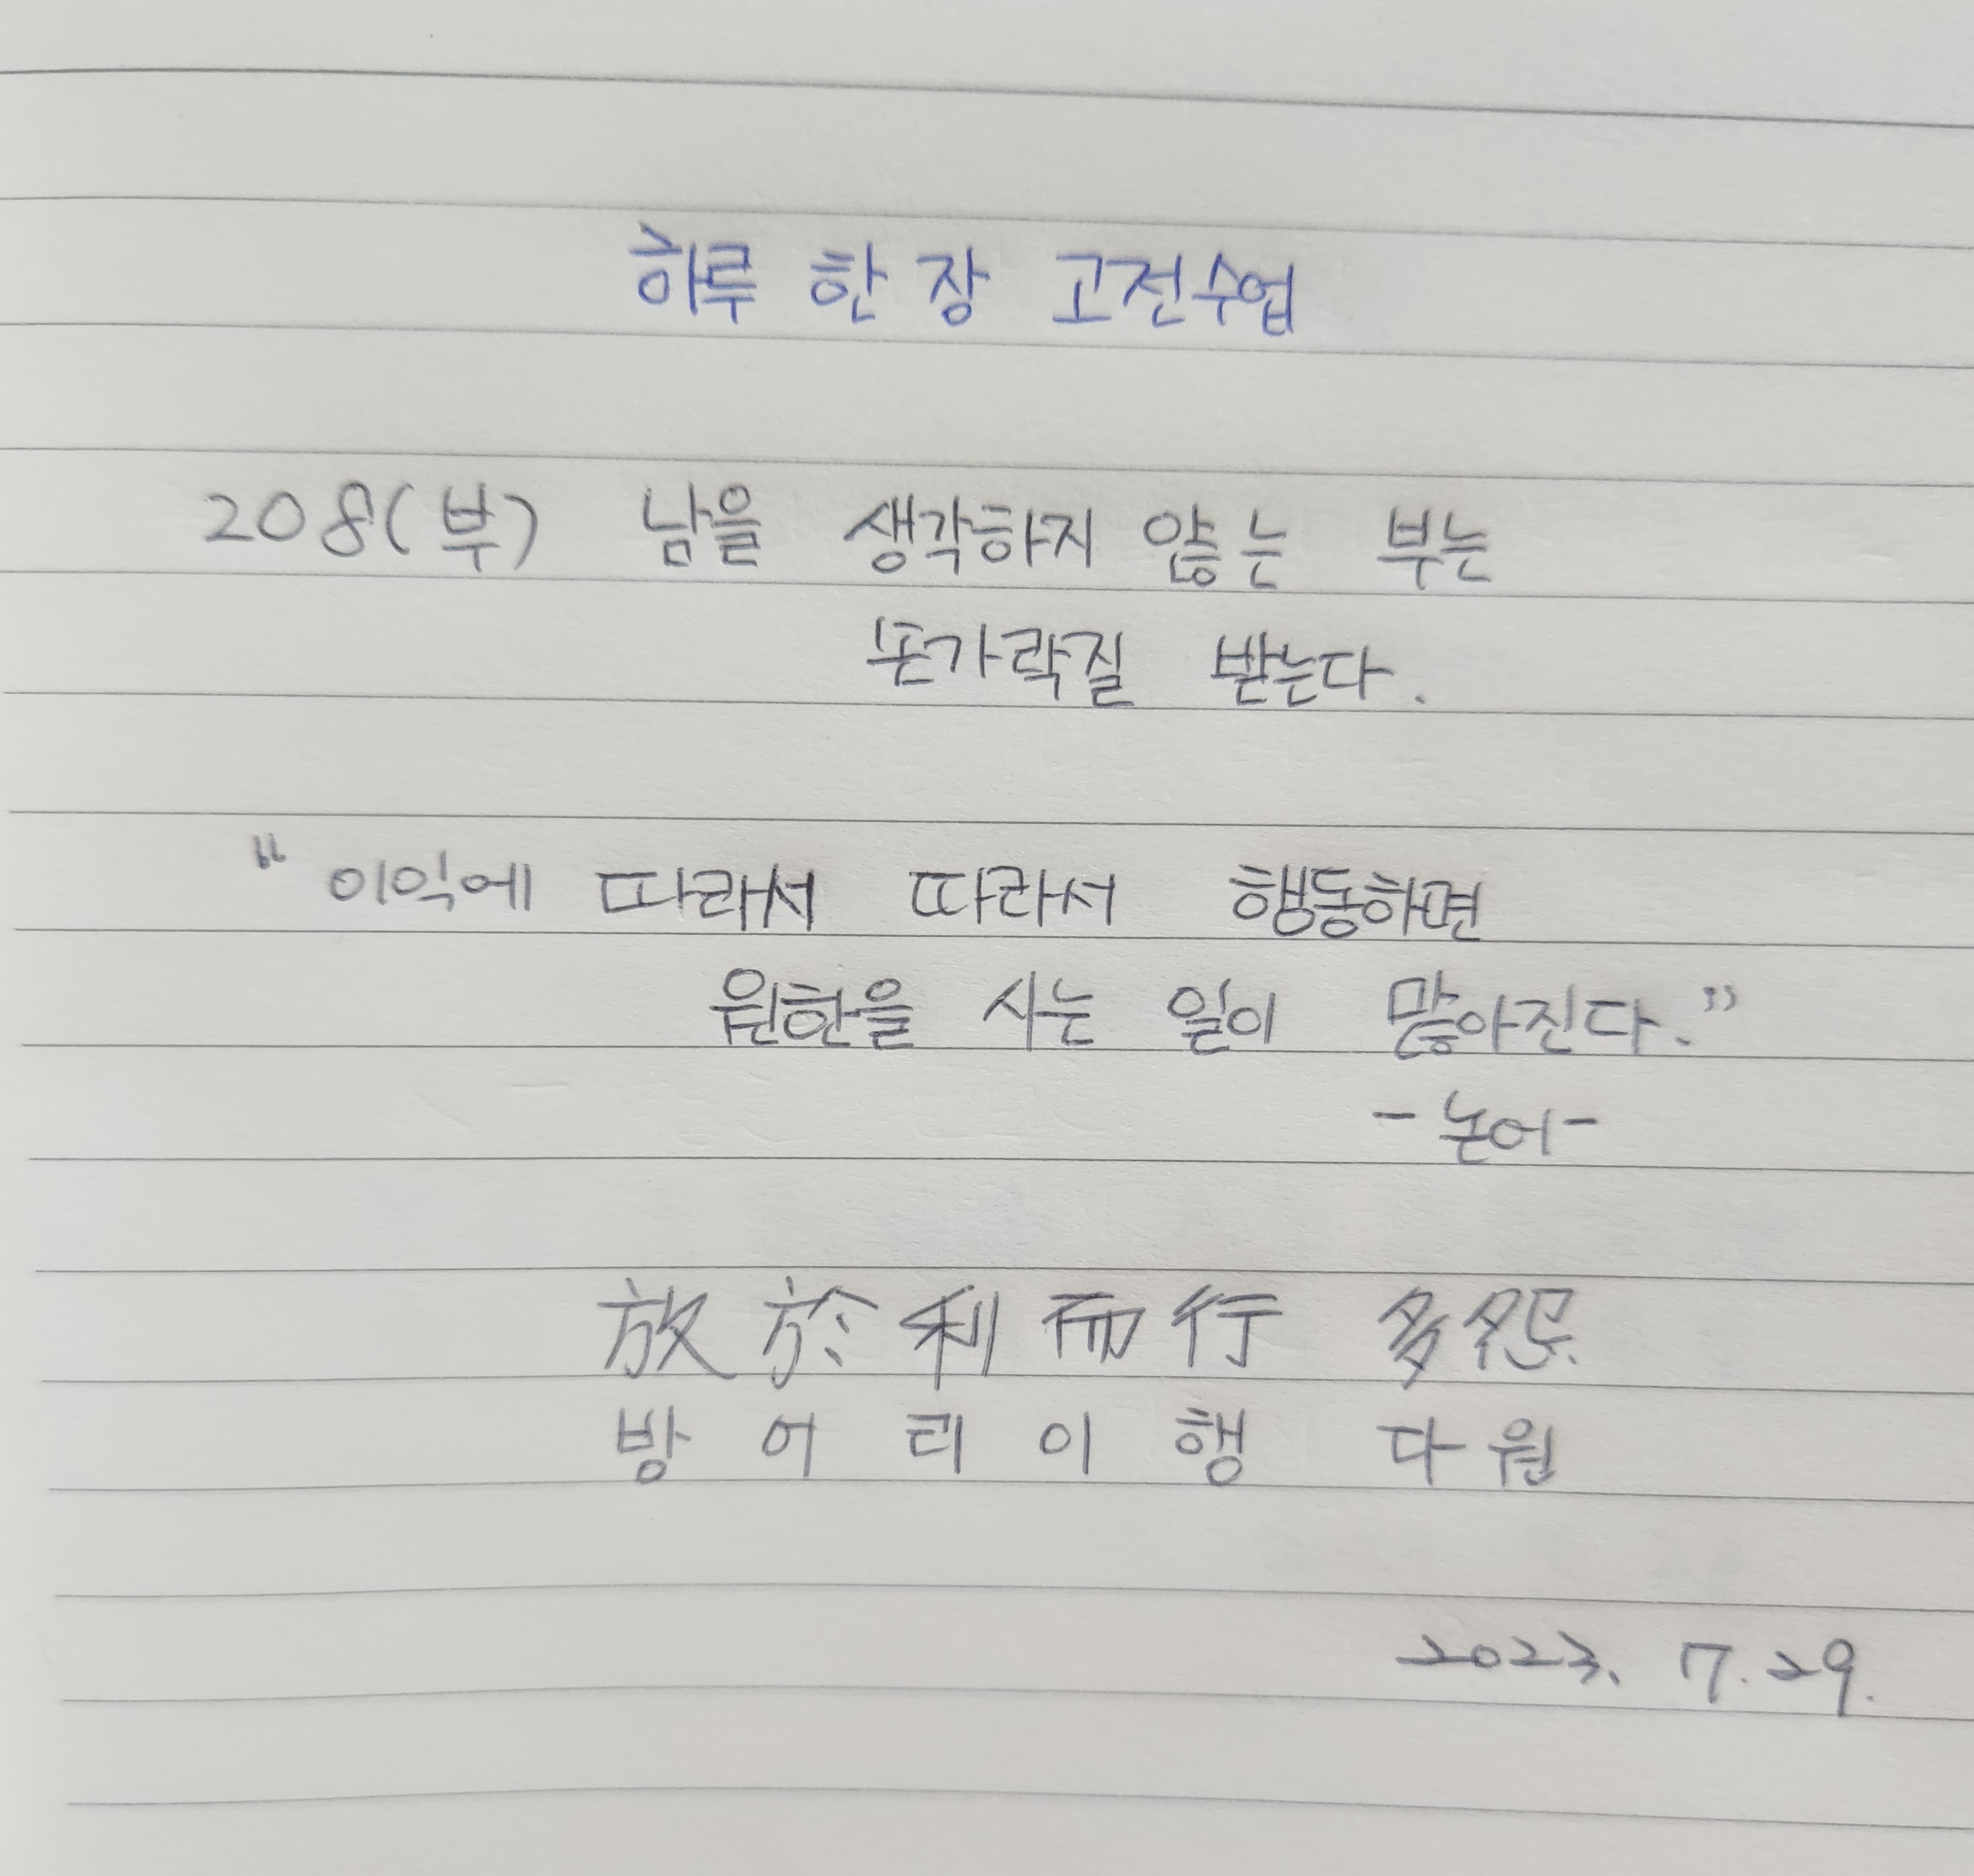 하루 한 장 고전수업
208(부) 남을 생각하지 않는 부는
손가락질 받는다.
“이익에 따라서 따라서 행동하면
원한을 사는 일이 많아진다.”
-논어-
放於利而行 多怨
방어리이행 다원
2023. 7. 29.